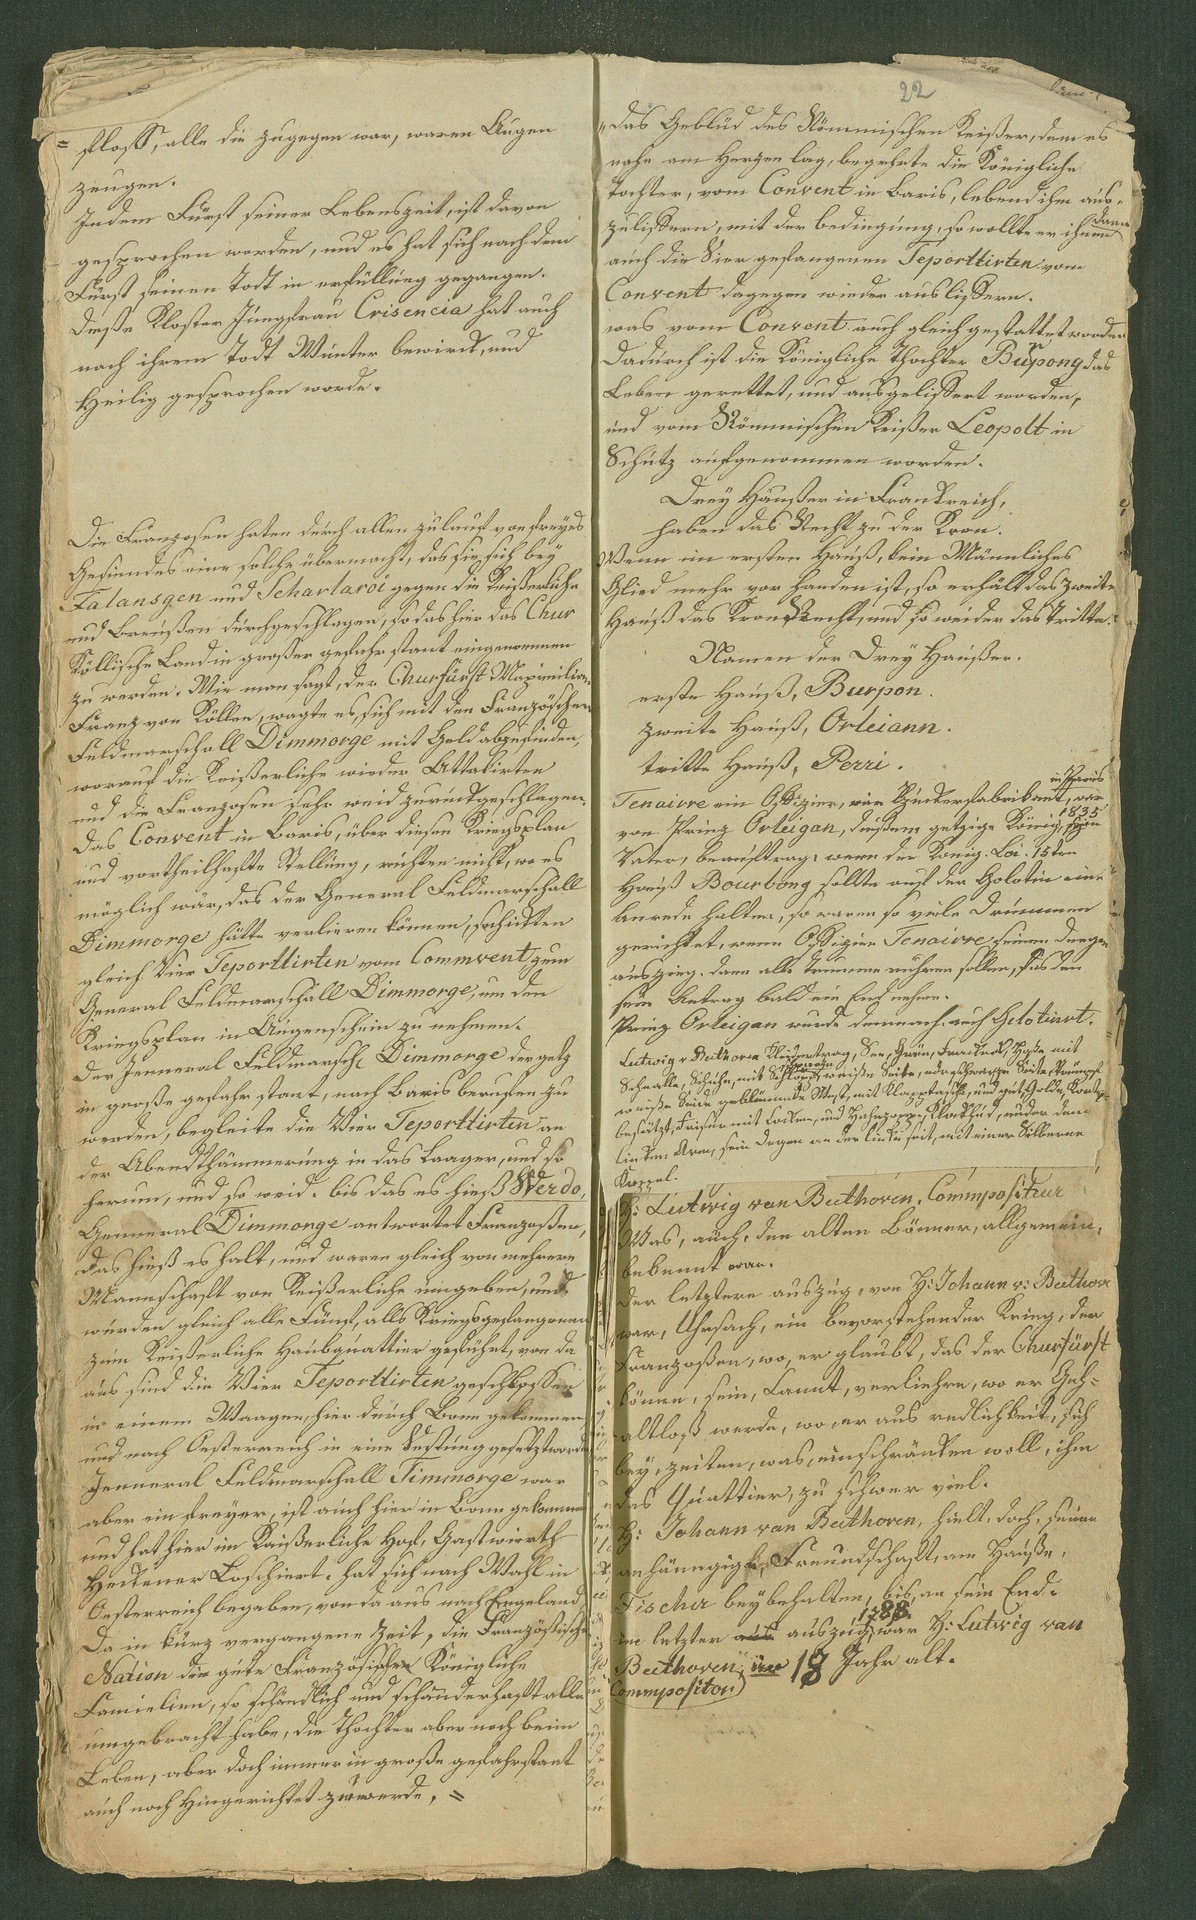 = floss, alle die zugegen war, waren Augen
zeugen.
In dem Fürst seiner Lebenszeit, ist davon
gesprochen worden, und es hat sich nach dem
Fürst seinen Todt in erfüllung gegangen.
Diese Kloster Jungfrau Crisencia hat auch
nach ihrem Todt Wunter bewirdt, und
Heilig gesprochen worde.
Die Franzosen haten durch allen zulauf von freyes
Gesiendes eine solche übermacht, das sie sich beÿ
Falansgen und Scharlaroi gegen die Keißerliche
und Breußen durchgeschlagen, so das hier das Chur
Köllische Land in großer gefahr stant eingenommen
zu werden. Wie man sagt, der Churfürst Maximilian
Franz von Köllen, wagte es, sich mit den Französchen
Feldmarschall Dimmorge mit Geld abzufinden,
worauf die Keißerliche wieder Attakirten
und die Franzosen sehr weid zurückgeschlagen.
Das Convent in Baris, über diesen Kriegsplan
und vortheilhafte Stellung, wusten nicht, wo es
möglich wär, das der General Feldmarschall
Dimmorge hätte verlieren können, schickten
gleich Vier Teporttirten vom Commvent zum
General Feldmarschall Dimmorge, um den
Kriegsplan in Augenschein zu nehmen.
Der Jenneral Feldmarsch Dimmorge der getz
in große gefahr stant, nach Baris berufen zu
werden, begleite die Vier Teporttirten an
der Abendthämmerung in das Laager, und so
herum, und so weid. bis das es hieß Werdo,
Genneral Dimmorge antwortet Franzoßen,
das hieß es halt, und waren gleich von mehrere
Mannschaft von Keißerliche umgeben, und
wurden gleich alle Fünf, alls Kriegsgefangenen
zum Keißerliche Haubquattier geführt, von da
aus sind die Vier Teporttirten geschlossen
in einem Waagen, hier durch Bonn gekommen
und nach Oesterreich in eine Festung gesetzt worde
Jenneral Feldmarschall Timmorge war
aber ein freyer, ist auch hier in Bonn gekommen
und hat hier im Kaißerliche Hof, Gastwirth
Heitener Loschiert. hat sich nach Wahl in
Oesterreich begaben, von da aus nach Engeland
Da in kurz vergangene Zeit, die Französische
Nation die gute Französische Königliche
Famielien, so schändlich und schauderhaft alle
umgebracht habe, die Thochter aber noch beim
Leben, aber doch immer in große gefahr stant
auch noch Hingerichtet zu werde, =
22
" das Geblüd des Römmischen Keißer, dem es
nahe am Herzen lag, begehrte die Königliche
Tochter, vom Convent in Baris, lebend ihm aus-
zulissern, mit der bedingung, so wollte er ihnen dann
auch die Vier gefangenen Teporttirten vom
Convent dagegen wieder auslissern.
was vom Convent auch gleich gestattet worden
dadurch ist die Königliche Thochter Burpong das
Leben gerettet, und ausgelissert worden,
und vom Römmischen Keißer Leopolt in
Schutz aufgenommen worden.
Drey Häußer in Frankreich,
haben das Recht zu der Kron.
Wenn im ersten Hauß, kein Männliches
Glied mehr vor handen ist, so erhält das zweite
Hauß das Kron Recht, und so weider das tritte.
Namen der Drey Haußer.
erste Hauß, Burpon.
zweite Hauß, Orleiann.
tritte Hauß, Perri.
Tenaivre ein Offizier, ein Zuckerfabrikant, in Paris war
von Prinz Orleigan, dießem getzige König, 1835
Vater, beauftrag, wenn der König. Loi. 15ten
Hauß Bourbong sollte auf der Golotin eine
Anrede halten, so waren so viele Drummen
gerichtet, wenn Offizier Tenaivre seinen Degen
auszieg, dann alle Trumme rühren sollen, das den
sein Antrag bald ein End nehme.
Prinz Orleigan wurde demnach auch Gelotinirt.
Lutwig v Beethoven Kleidertrag, See, Grün, Frackrock, Hoße mit
Schnalle, Schuhe, mit Schlöp weiße Seite, oder schwarze Seite strümpf
weiße Seide geblümmde West, mit Klapptasche,
besätzt, Frisür mit Locken, und Hahrzopp, Klackhud, under dem
linken Arm, sein Degen an der linke seit, mit einer Silberne
Koppel.
H: Lutwig van Beethoven, Commpositeur
Was, auch, den alten Bönner, allgemein,
bekennt war.
Der letztere auszug, von H: Johann v: Beethoven
war, Uhrsach, ein bevorstehender Krieg, der
Franzoßen, wo, er glaubt, das der Churfürst
könen, sein, Lannt, verliehre, wo er Geh-
altloß werde, wo, er aus redlichkeit, sich
bey, zeiten, was, einschränken woll, ihm
das Quattier, zu schwer viel.
H: Johann van Beethoven, hielt, doch, seine
anhänngige, Freundschaft, am Hauße,
Fischer beybehalten, bis, an sein End.
im letzter auszug, 1788 war H: Lutwig van
Beethoven 18 Jahr alt.
Commpositori